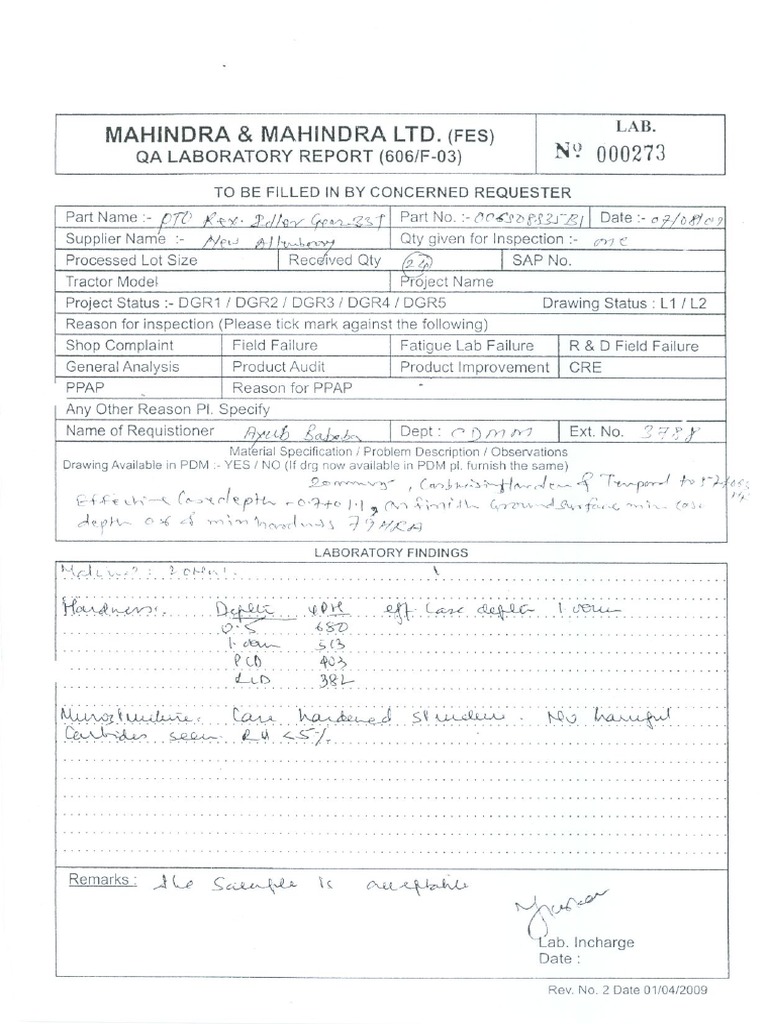 MAHINDRA & MAHINDRA LTD. (FES)
QA LABORATORY REPORT (606/F-03)
LAB.
Nº 000273
TO BE FILLED IN BY CONCERNED REQUESTER
Part Name :- PTO Rev. Idler Gear 33T Part No. :- 006508835B1 Date :- 07/08/09
Supplier Name :- New Qty given for Inspection :- one
Processed Lot Size Received Qty 24 SAP No.
Tractor Model Project Name
Project Status :- DGR1 / DGR2 / DGR3 / DGR4 / DGR5 Drawing Status : L1 / L2
Reason for inspection (Please tick mark against the following)
Shop Complaint Field Failure Fatigue Lab Failure R & D Field Failure
General Analysis Product Audit Product Improvement CRE
PPAP Reason for PPAP
Any Other Reason Pl. Specify
Name of Requistioner Ayub Dept : CDMM Ext. No. 3788
Material Specification / Problem Description / Observations
Drawing Available in PDM :- YES / NO (If drg now available in PDM pl. furnish the same)
Effective Case depth - 0.7 to 1.1, on finish Ground surface min case
depth 0.6 & min hardness 79 HRA
LABORATORY FINDINGS
Hardness: Depth VPH eff. Case depth 1.00mm
0.5 680
1.00mm 513
PCD 403
RCD 382
Microstructure: Case hardened structure. No harmful
Carbides seen RA <5%
Remarks : The Sample is acceptable
Lab. Incharge
Date :
Rev. No. 2 Date 01/04/2009